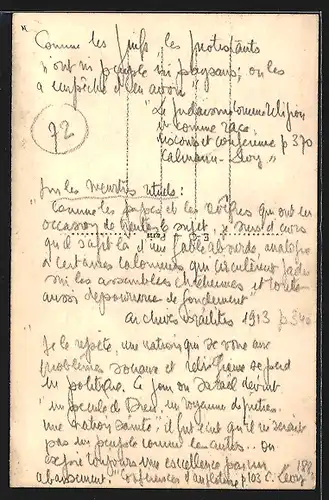 Comme les Juifs les protestants
n'ont ni peuple ni paysans; on les
a empêché d'en avoir"
"Le Judaïsme comme religion
et comme race,
discours et conférence p 370
Calmann-Levy"
72
Sur les meurtres rituels:
"Comme les papes et les qui ont eu
occasion de le sujet, je suis d'avis
qu'il s'agit là d'une fable absurde, analogue
à certaines calomnies qui circulèrent jadis
sur les assemblées chrétiennes et toute
aussi dépourvue de fondement"
Archives israélites 1913 p 340
Je le répète, une nation qui se voue aux
problèmes sociaux et religieux se perd
en politique. Le jour où Israël devint
"un peuple de Dieu, un royaume de prêtres,
une nation sainte" il fut écrit qu'il ne serait
pas un peuple comme les autres.. On
expie toujours une excellence par un
abaissement." Conférences d'Angleterre p 103 C. Levy